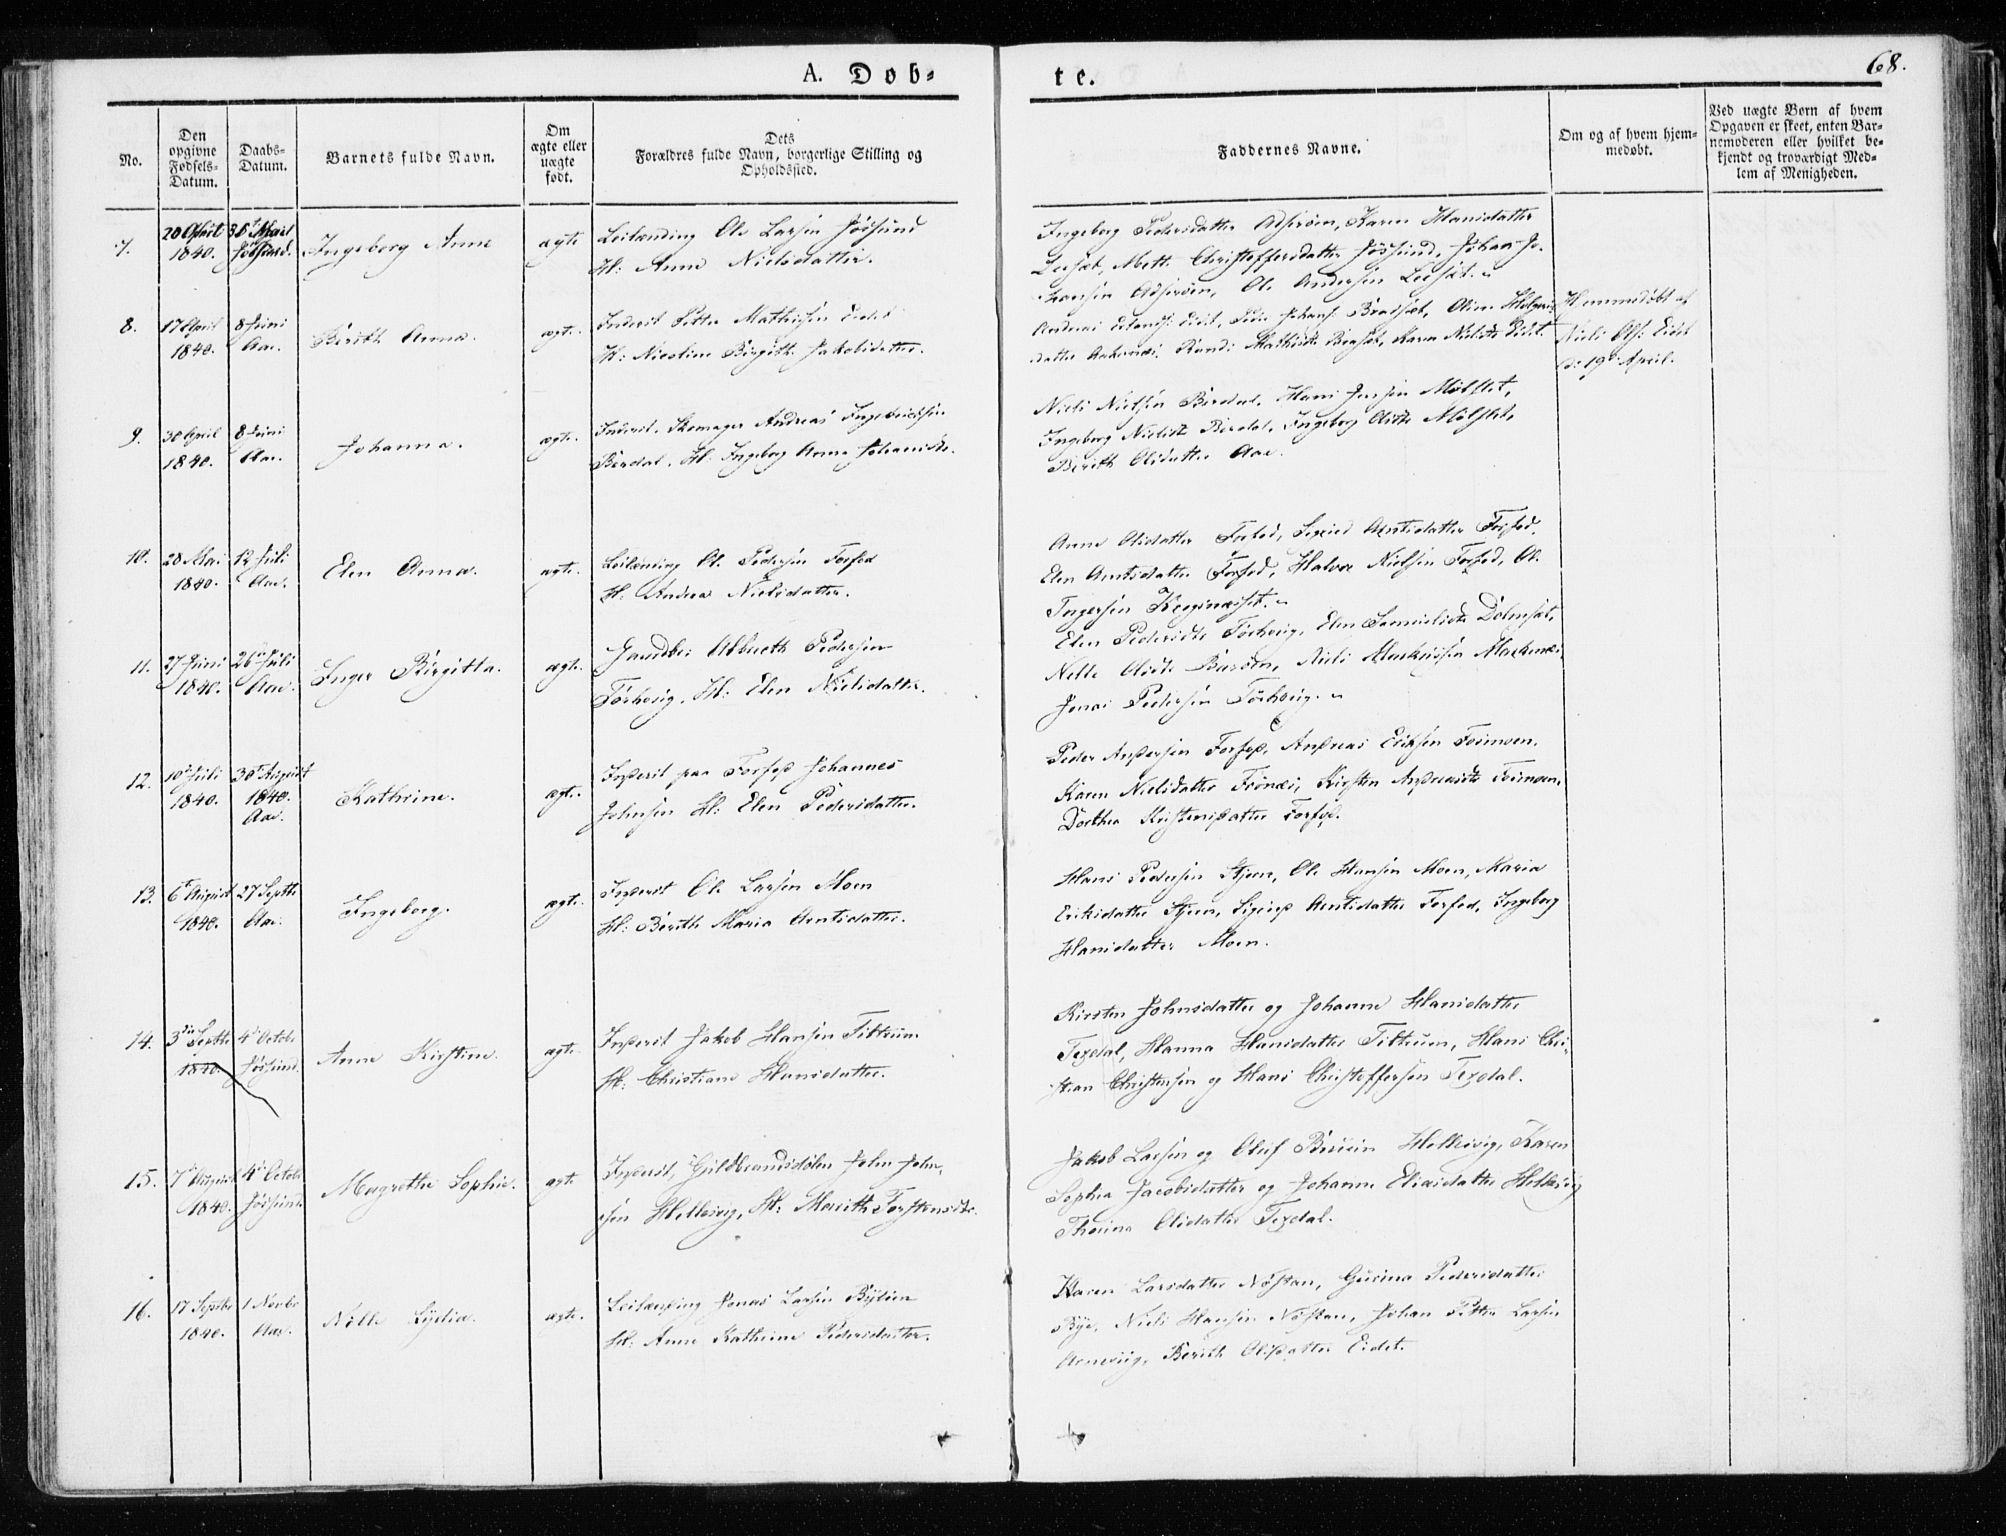 A. Døb-
te.
68.
No.
Den
opgivne
Fødsels-
Datum.
Daabs-
Datum.
Barnets fulde Navn.
Om
ægte eller
uægte
født.
Dets
Forældres fulde Navn, borgerlige Stilling og
Opholdssted.
Faddernes Navne.
Om og af hvem hjem-
medøbt.
Ved uægte Børn af hvem
Opgaven er skeet, enten Bar-
nemoderen eller hvilket be-
kjendt og troværdigt Med-
lem af Menigheden.
7.
20 April
1840.
Mai
Jøssund.
Ingeborg Anne
ægte
Leilænding Ole Larsen Jøssund
H: Anne Nielsdatter.
Ingeborg Pedersdatter Karen Hansdatter
Mett. Christoffersdatter Jøssund, Johan Jo-
hansen Ole Andersen
8.
17 April
1840.
8 Juni
Aae.
Berith Anna.
ægte.
Inderst Petter Mathisen Eidet
H: Nicoline Birgith Jakobsdatter.
datter Karen Nielsdt. Eidet.
Hjemmedøbt af
Niels Ols: Eidet
d: 19de April.
9.
30 April
1840.
8 Juni
Aae.
Johanna.
ægte.
Inderst. Skomager Andreas Ingebrigtsen
Berdal. H: Ingeborg Anna Johansdtr.
Niels Nielsen Berdal, Hans Jensen Mølslet,
Ingeborg Nielsdt. Berdal, Ingeborg Olsdtr Mølslet,
Berith Olsdatter Aae.
10.
28 Mai
1840.
12 Juli
Aae.
Elen Anna.
ægte.
Leilænding Ole Pedersen Forfod
H: Andrea Nielsdatter.
Anne Olsdatter Forfod, Sigrid Arntsdatter Forfod,
Elen Arntsdatter Forfod, Halvor Nielsen Forfod, Ole
Ingersen
11.
27 Juni
1840.
26 Juli
Aae.
Inger Birgitta.
ægte.
Albrecth Pedersen
Tørhovig. H: Elen Nielsdatter.
Elen Pedersdtr Tørhovig, Elen Samuelsdtr Dolmset,
Nelle Olsdt. Barøen, Niels Markussen
Jonas Pedersen Tørhovig.
12.
10 Juli
1840.
30 August
1840.
Aae.
Kathrine.
ægte.
Inderst paa Forfod Johannes
Johnsen H: Elen Pedersdatter.
Peder Andersen Forfod, Andreas Eriksen Teimoen,
Karen Nielsdatter Kirsten Andreasdtr Teimoen,
Dorthea Kristensdatter Forfod.
13.
6 August
1840.
27 Septbr
Aae.
Ingeborg.
ægte.
Inderst Ole Larsen Moen
H: Berith Maria Arntsdatter.
Hans Pedersen Stjern, Ole Hansen Moen, Maria
Eriksdatter Stjern, Sigrid Arntsdatter Forfod, Ingeborg
Hansdatter Moen.
14.
3die Septbr
1840.
4 Octobr
Jøssund.
Anne Kirstine.
ægte.
Inderst Jakob Hansen Titterum
H: Christiane Hansdatter.
Kirsten Johnsdatter og Johanne Hansdatter
Texdal, Hanna Hansdatter Titterum, Hans Chri-
stian Christensen og Hans Christoffersen Texdal.
15.
7 August
1840.
4 Octobr
Jøssund.
Magrethe Sophie.
ægte
Inderst, Guldbrandsdølen John John-
sen Hellesvig, H: Marith Torstensdtr.
Jakob Larsen og Oluf Hellesvig, Karen
Sophia Jacobsdatter og Johanne Eliasdatter Hellesvig
Thorina Olsdatter Texdal.
16.
17 Septbr
1840.
1 Novbr
Aae.
Nelle Lydia.
ægte.
Leilænding Jonas Larsen
H: Anne Kathrine Pedersdatter.
Karen Larsdatter Nøstan, Gurina Pedersdatter
Bye, Niels Hansen Nøstan, Johan Petter Larsen
Arnevig, Berith Olsdatter Eidet.